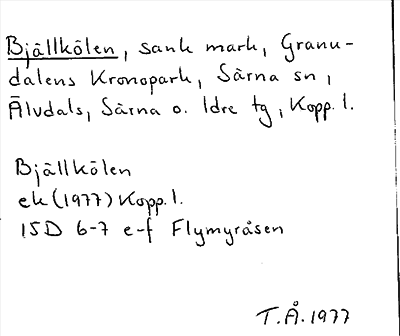 Bjällkölen, sank mark, Granu-
dalens Kronopark, Särna sn,
Älvdals, Särna o. Idre tg, Kopp. l.
Bjällkölen
ek (1977) Kopp. l.
15D 6-7 e-f Flymyråsen
T.Å. 1977